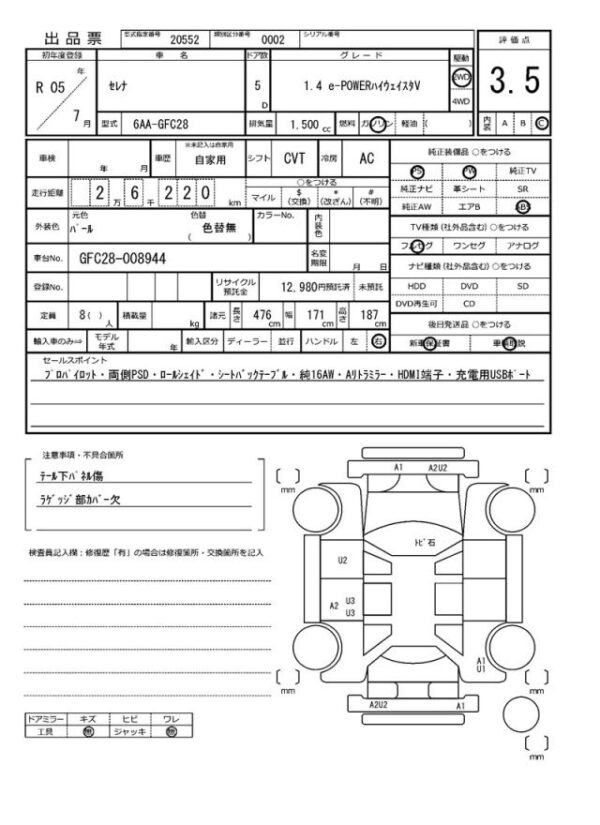 出品票 型式指定番号 20552 類別区分番号 0002 シリアル番号
評価点
3.5
内装 A B C
初年度登録 車名 ドア数 グレード 駆動
R 05 年 7 月
セレナ 5 D 1.4 e-POWERハイウェイスタV 2WD
4WD
型式 6AA-GFC28 排気量 1,500 cc 燃料 ガソリン 軽油 ( )
車検 年 月 車歴 ※未記入は自家用 自家用 シフト CVT 冷房 AC
純正装備品 ○をつける
PS PW 純正TV
純正ナビ 革シート SR
純正AW エアB ABS
走行距離 2 万 6 千 2 2 0 km
○をつける
マイル $ (交換) * (改ざん) # (不明)
外装色 元色 パール 色替 色替無 ( ) カラーNo. 内装色
TV種類 (社外品含む) ○をつける
フルセグ ワンセグ アナログ
車台No. GFC28-008944 名変期限 月 日
ナビ種類 (社外品含む) ○をつける
HDD DVD SD
DVD再生可 CD
登録No. リサイクル預託金 12,980円預託済 未預託
定員 8 ( ) 人 積載量 kg 諸元 長さ 476 cm 幅 171 cm 高さ 187 cm
後日発送品 ○をつける
新車保証書 車輌取説
輸入車のみ⇒ モデル年式 年 輸入区分 ディーラー 並行 ハンドル 左 右
セールスポイント
プロパイロット・両側PSD・ロールシェイド・シートバックテーブル・純16AW・Aリトラミラー・HDMI端子・充電用USBポート
注意事項・不具合箇所
テール下パネル傷
ラゲッジ部カバー欠
検査員記入欄:修復歴「有」の場合は修復箇所・交換箇所を記入
A1 A2U2
mm
mm
トビ石
U2
A2 U3
U3
A1
U1
mm
mm
A2U2 A1
mm
ドアミラー キズ ヒビ ワレ
工具 無 ジャッキ 無